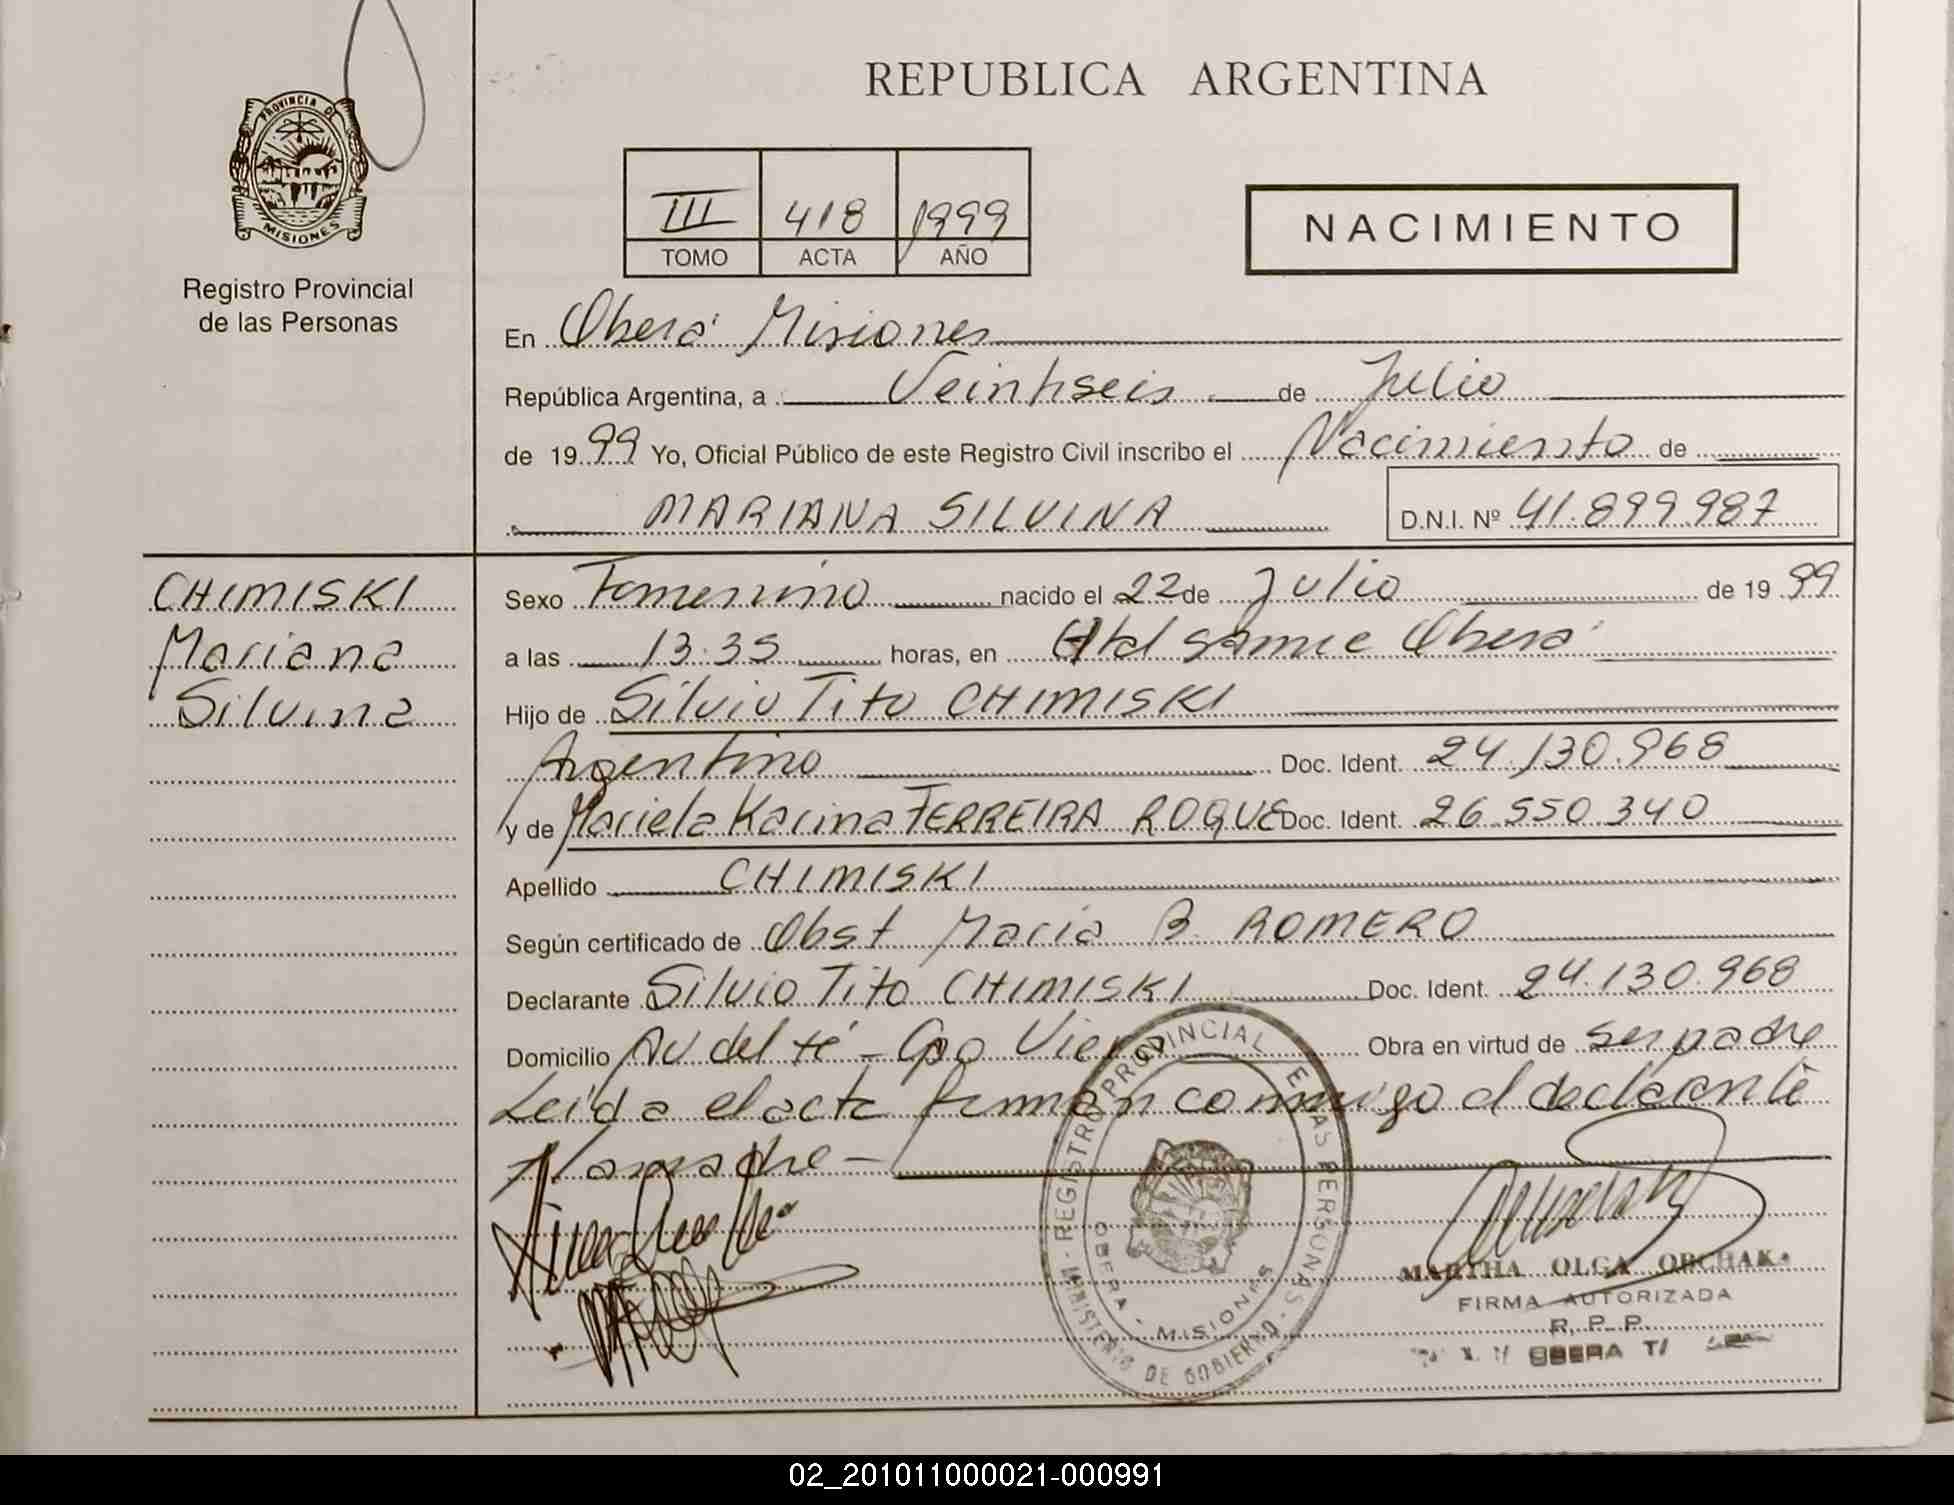 REPUBLICA ARGENTINA
PROVINCIA DE
MISIONES
Registro Provincial
de las Personas
III 418 1999
TOMO ACTA AÑO
NACIMIENTO
En Oberá Misiones
República Argentina, a Veintiseis de Julio
de 1999 Yo, Oficial Público de este Registro Civil inscribo el Nacimiento de
MARIANA SILVINA D.N.I. Nº 41.899.987
CHIMISKI
Mariana
Silvina
Sexo Femenino nacido el 22 de Julio de 1999
a las 13.35 horas, en Htal samic Oberá
Hijo de Silvio Tito CHIMISKI
Argentino Doc. Ident. 24.130.968
y de Mariela Karina FERREIRA ROQUE Doc. Ident. 26.550.340
Apellido CHIMISKI
Según certificado de Obst Maria B. ROMERO
Declarante Silvio Tito CHIMISKI Doc. Ident. 24.130.968
Domicilio Av del té - Cpo Viera Obra en virtud de ser padre
Leida el acta firman conmigo el declarante
y la madre -
REGISTRO PROVINCIAL DE LAS PERSONAS
MINISTERIO DE GOBIERNO
OBERA - MISIONES
MARTHA OLGA OBCHAK
FIRMA AUTORIZADA
R. P. P.
OBERA T/
02_201011000021-000991